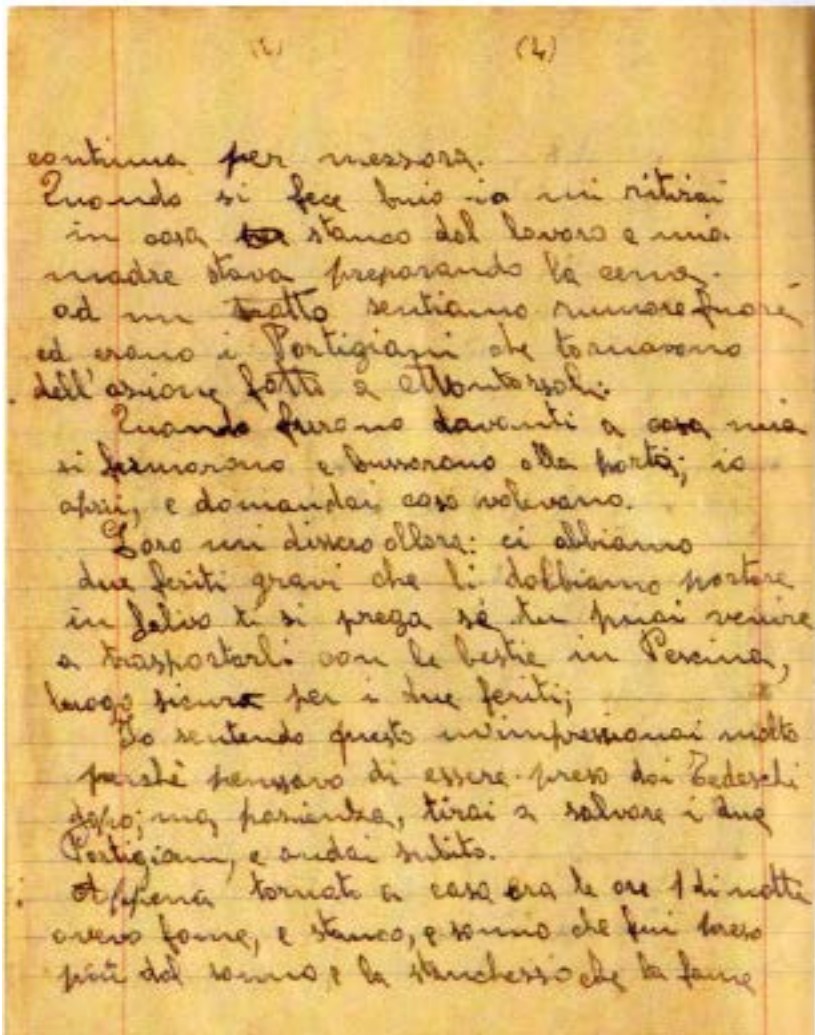 (4)
continua per mezzora.
Quando si fece buio io mi ritirai
in casa stanco dal lavoro e mia
madre stava preparando la cena.
ad un tratto sentiamo rumore fuori
ed erano i Partigiani che tornavano
dell'azione fatta a
Quando furono davanti a casa mia
si fermarono e bussarono alla porta; io
aprii, e domandai cosa volevano.
Loro mi dissero allora: ci abbiamo
due feriti gravi che li dobbiamo portare
in salvo ti si prega se tu puoi venire
a trasportarli con le bestie in Pescina,
luogo sicuro per i due feriti;
Io sentendo questo m'impressionai molto
perché pensavo di essere preso dai Tedeschi
dopo; ma pazienza, tirai a salvare i due
Partigiani, e andai subito.
Appena tornato a casa era le ore 1 di notte
avevo fame, e stanco, e sonno che fui preso
più dal sonno e la stanchezza che la fame